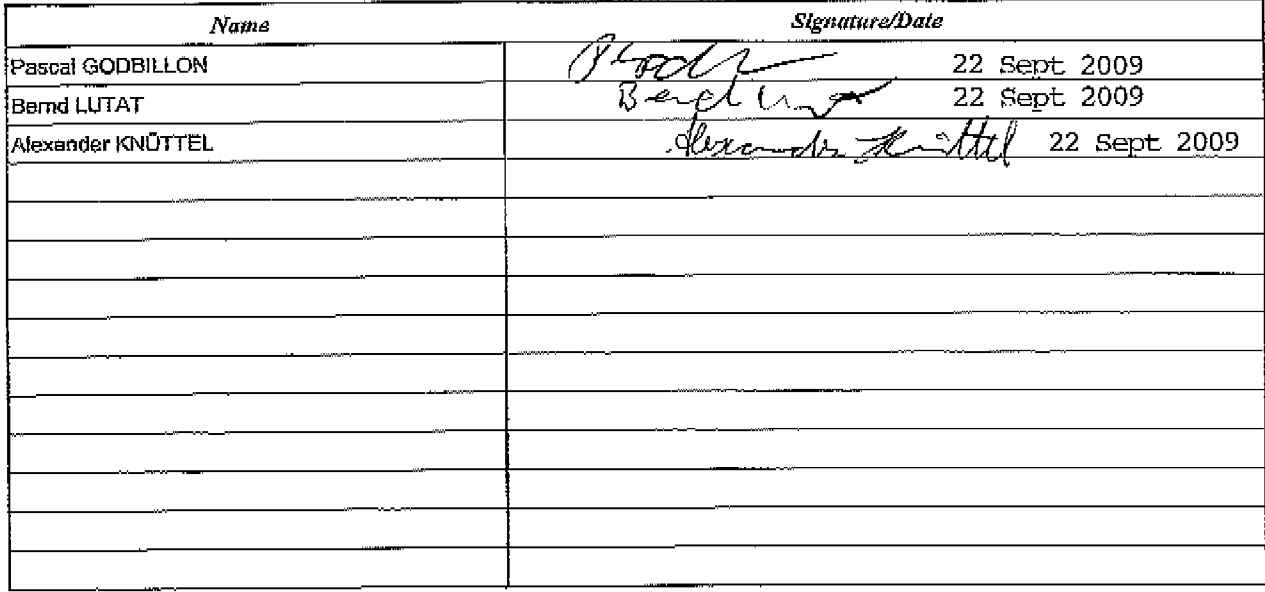 Name Signature/Date
Pascal GODBILLON 22 Sept 2009
Bernd LUTAT Bernd 22 Sept 2009
Alexander KNÜTTEL Alexander Knüttel 22 Sept 2009